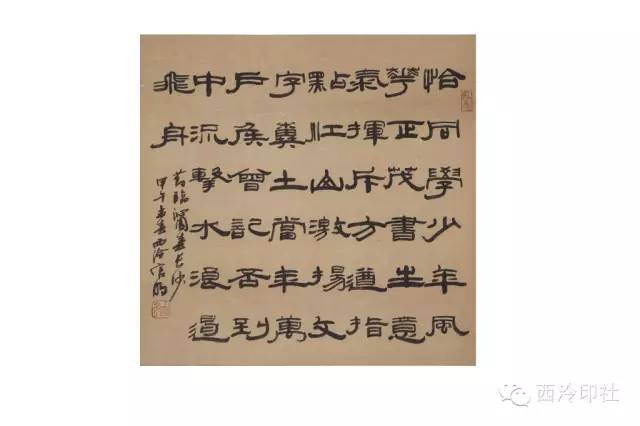 恰同學少年風
華正茂書生意
氣揮斥方遒指
點江山激揚文
字糞土當年萬
戶侯曾記否到
中流擊水浪遏
飛舟
沁園春長沙
甲午春西泠
西泠印社